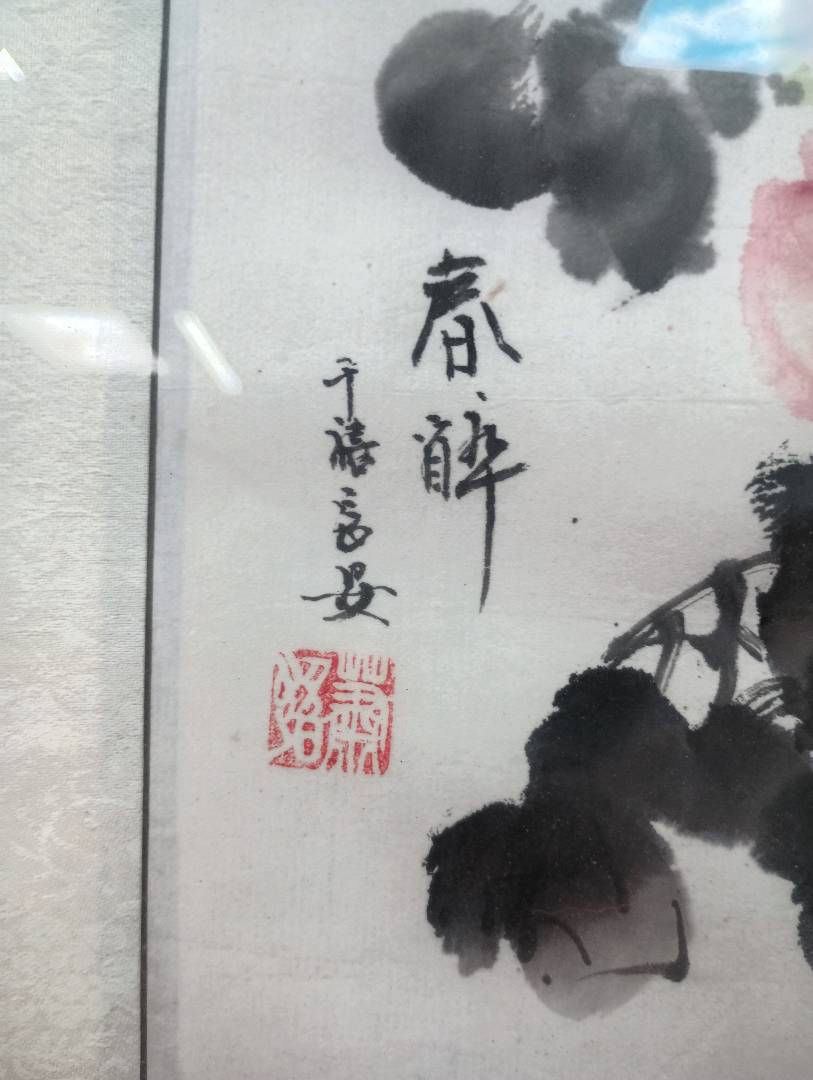 春醉
千禧長安